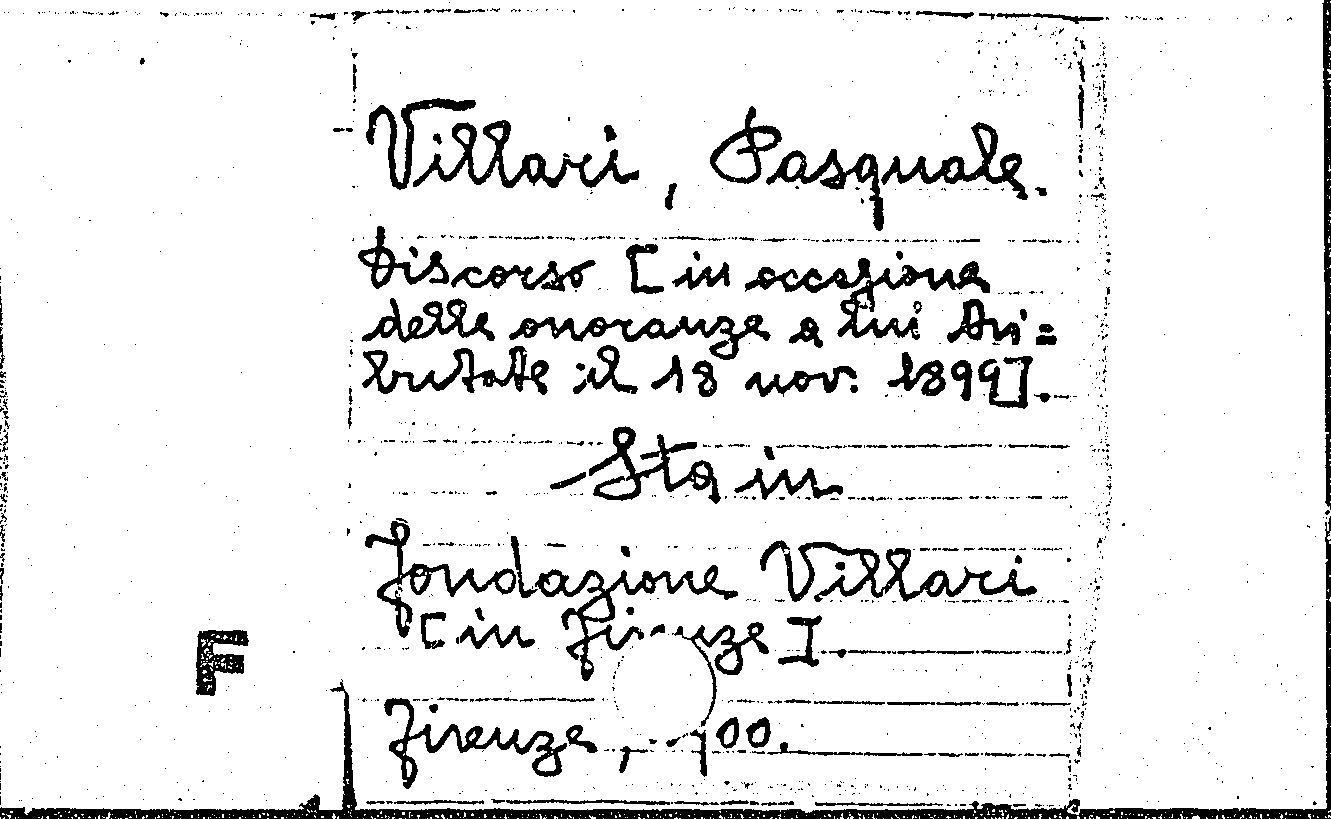 Villari, Pasquale.
Discorso [in occasione
delle onoranze a lui tri=
butate il 18 nov. 1899].
Sta in
Fondazione Villari
[in Firenze].
F
Firenze, 1900.